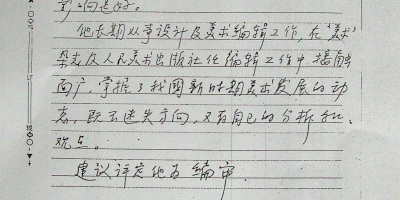 影响是好。
他长期从事设计及美术编辑工作，在《美术》
杂志及人民美术出版社任编辑工作中接触
面广，掌握了我国新时期美术发展的动
态，既不迷失方向，又有自己的分析和
观点。
建议评定他为编审。